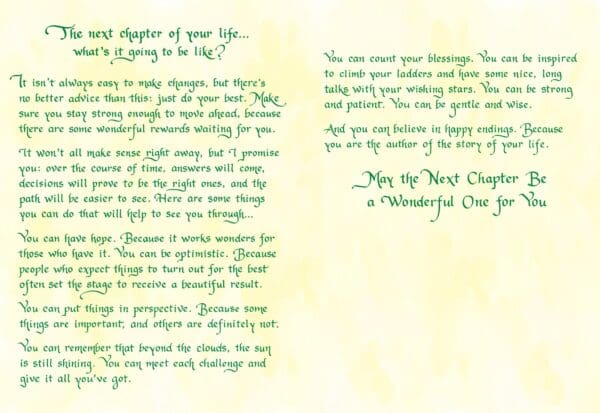 The next chapter of your life...
what's it going to be like?
It isn't always easy to make changes, but there's
no better advice than this: just do your best. Make
sure you stay strong enough to move ahead, because
there are some wonderful rewards waiting for you.
It won't all make sense right away, but I promise
you: over the course of time, answers will come,
decisions will prove to be the right ones, and the
path will be easier to see. Here are some things
you can do that will help to see you through...
You can have hope. Because it works wonders for
those who have it. You can be optimistic. Because
people who expect things to turn out for the best
often set the stage to receive a beautiful result.
You can put things in perspective. Because some
things are important, and others are definitely not.
You can remember that beyond the clouds, the sun
is still shining. You can meet each challenge and
give it all you've got.
You can count your blessings. You can be inspired
to climb your ladders and have some nice, long
talks with your wishing stars. You can be strong
and patient. You can be gentle and wise.
And you can believe in happy endings. Because
you are the author of the story of your life.
May the Next Chapter Be
a Wonderful One for You